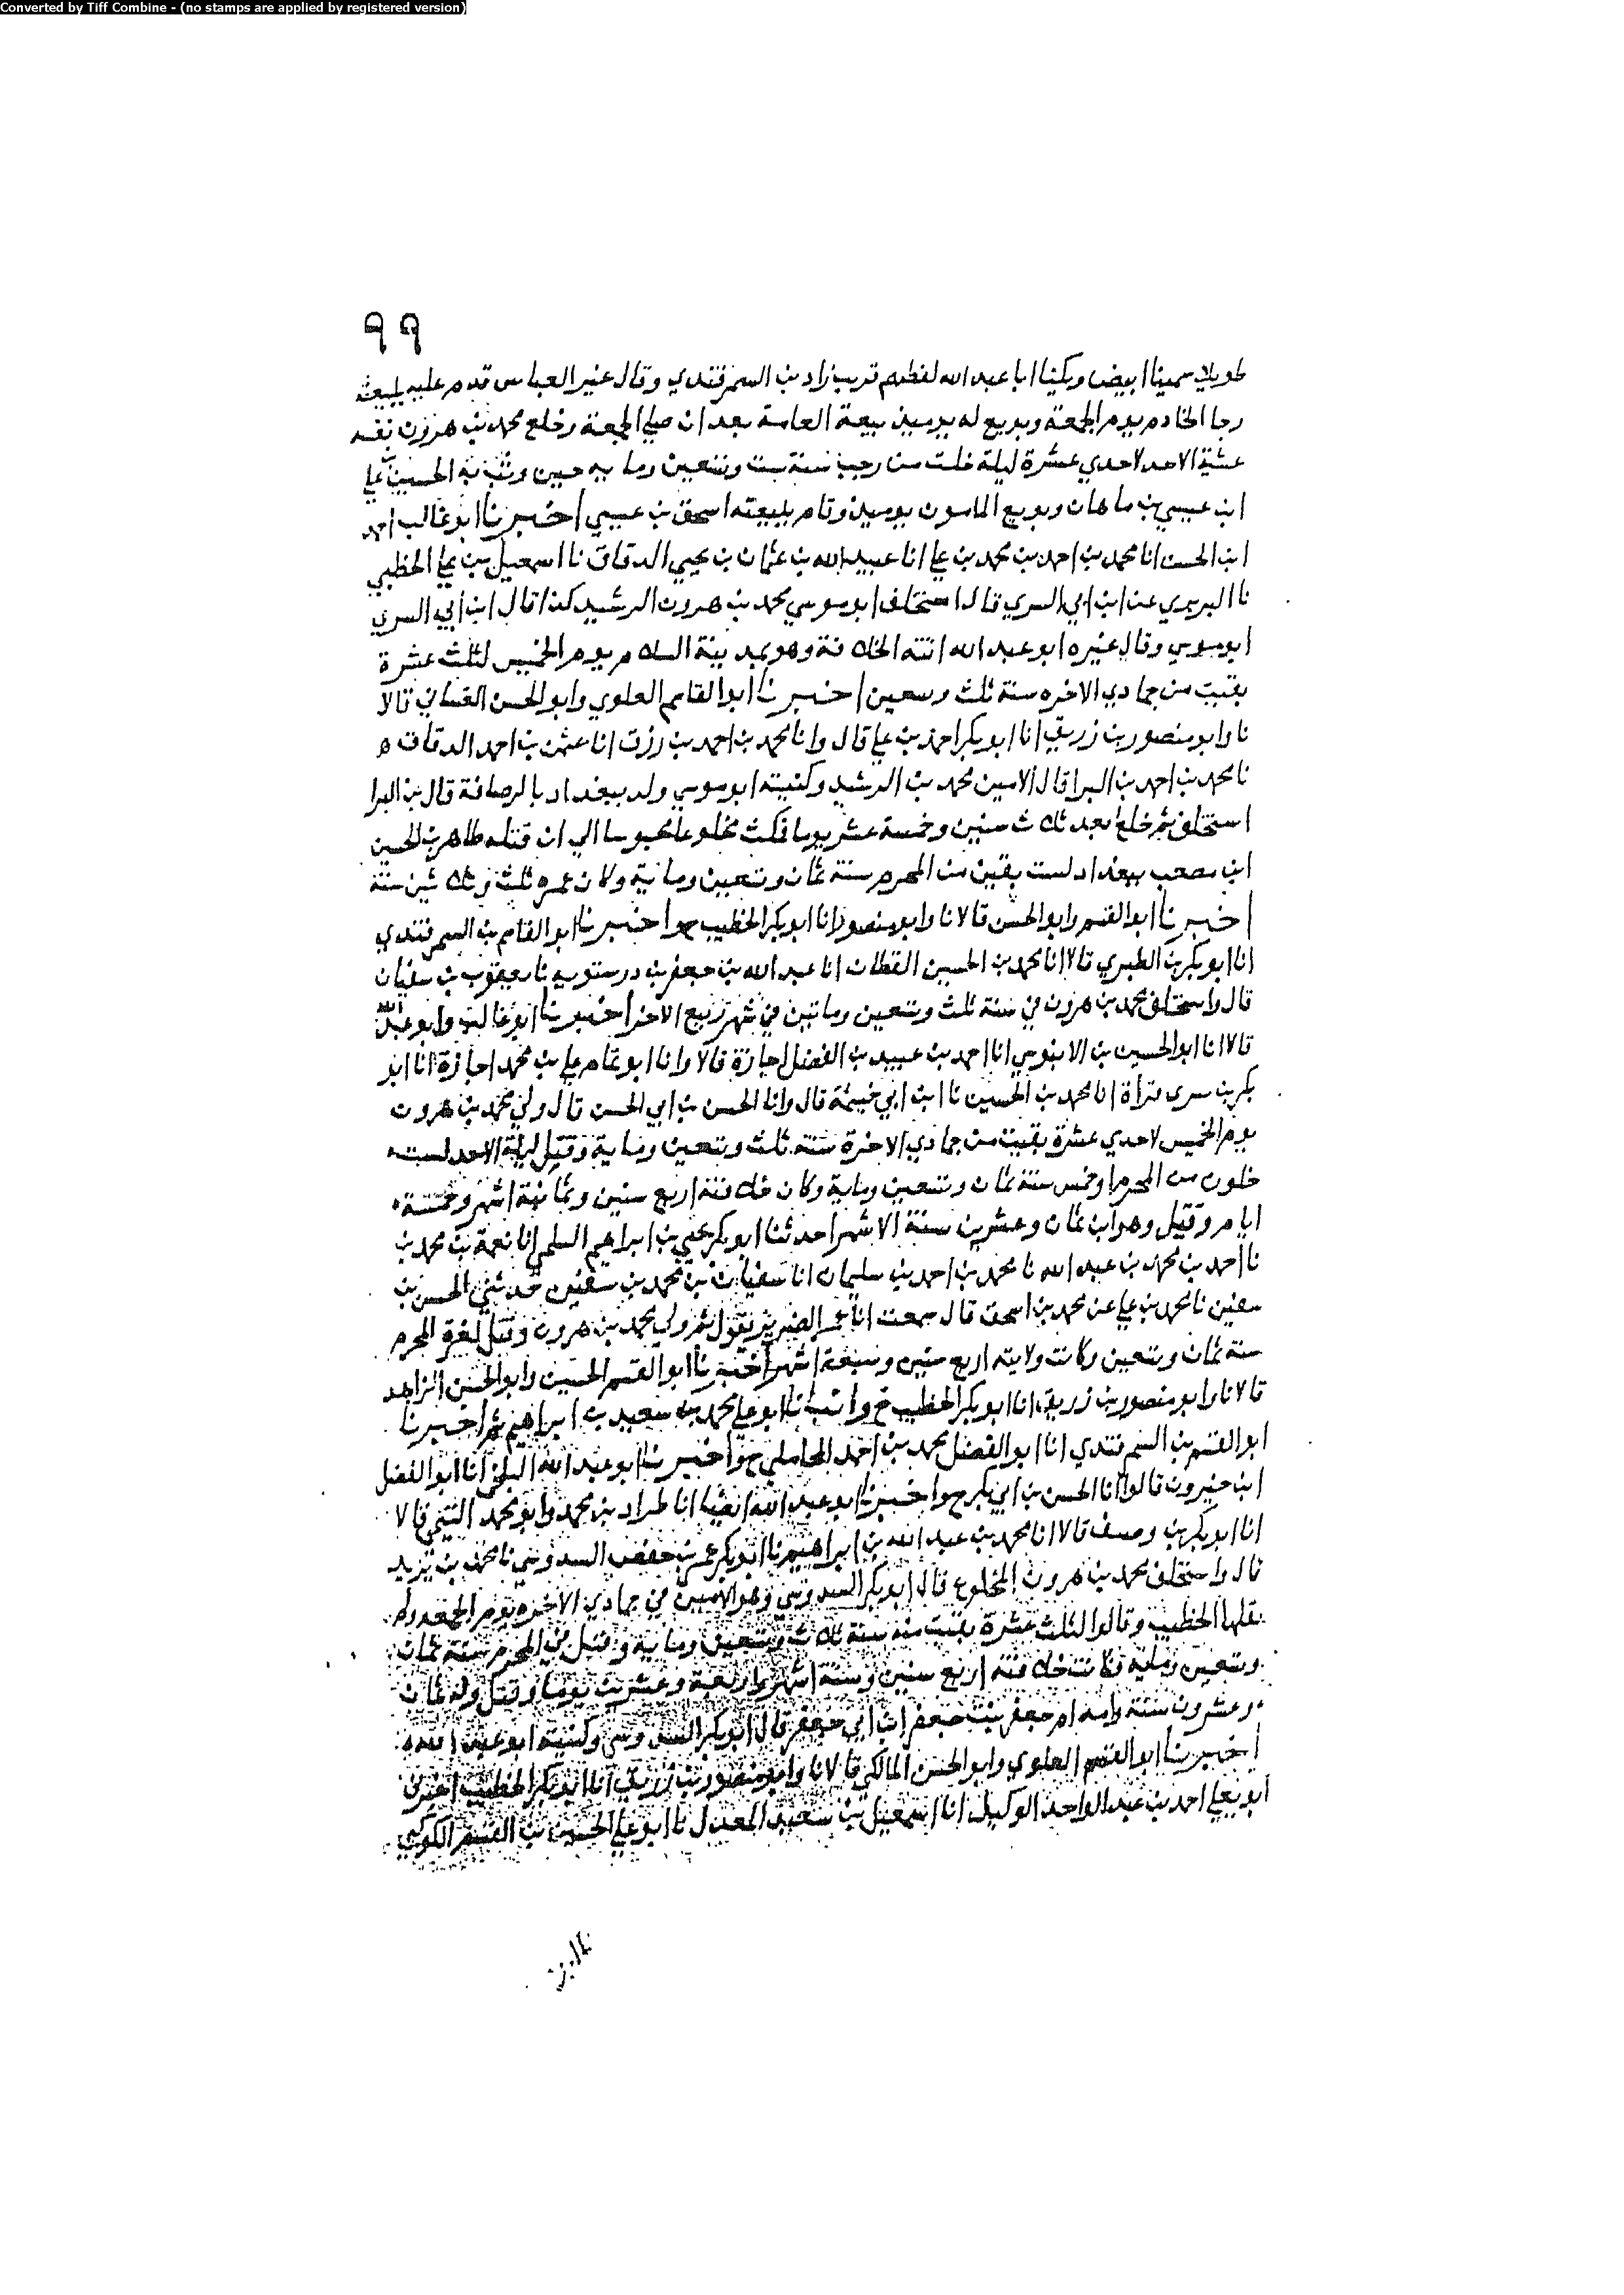 Converted by Tiff Combine - (no stamps are applied by registered version)
٩٩
طويلا سمينا ابيض ويكنا ابا عبد الله لفظهم قريب زاد بن السمرقندي وقال غير العباس قدم عليه ببيعته
رجا الخادم يوم الجمعة وبويع له يوميذ بيعة العامة بعد ان صلي الجمعة وخلع محمد بن هرون نفسه
عشية الاحد لاحدي عشرة ليلة خلت من رجب سنة ست وتسعين وماية حين وثب به الحسين بن علي
ابن عيسي بن ماهان وبويع المامون يوميذ وقام ببيعته اسحق بن عيسي اخبرنا ابو غالب احمد
ابن الحسن انا محمد بن احمد بن محمد بن علي انا عبيد الله بن عثمان بن يحيي الدقاق نا اسمعيل بن علي الخطبي
نا البربري عن ابن ابي السري قال استخلف ابو موسي محمد بن هرون الرشيد كذا قال ابن ابي السري
ابو موسي وقال غيره ابو عبد الله اتته الخلافة وهو بمدينة السلام يوم الخميس لثلث عشرة
بقيت من جمادي الاخره سنة ثلث وسعين اخبرنا ابو القاسم العلوي وابو الحسن الغساني قالا
نا وابو منصور بن زريق انا ابو بكر احمد بن علي قال وانا محمد بن احمد بن رزق انا عثمن بن احمد الدقاق ه
نا محمد بن احمد بن البرا قال الامين محمد بن الرشيد وكنيته ابو موسي ولد ببغداد بالرصافة قال بن البرا
استخلف ثم خلع بعد ثلاث سنين وخمسة عشر يوما فمكث مخلوعا محبوسا الي ان قتله طاهر بن الحسين
ابن مصعب ببغداد لست بقين من المحرم سنة ثمان وتسعين وماية وكان عمره ثلث وثلاثين سنة
اخبرنا ابو القسم وابو الحسن قالا نا وابو منصور انا ابو بكر الخطيب ح واخبرنا ابو القاسم بن السمرقندي
انا ابو بكر بن الطبري قالا انا محمد بن الحسين القطان انا عبد الله بن جعفر بن درستويه نا يعقوب بن سفيان
قال واستخلف محمد بن هرون في سنة ثلث وتسعين وماتين في شهر ربيع الاخر اخبرنا ابو غالب وابو عبد الله
قالا انا ابو الحسين بن الابنوسي انا احمد بن عبيد بن الفضل اجازة قالا وانا ابو تمام علي بن محمد اجازة انا ابو
بكر بن سرى قراة انا محمد بن الحسين نا ابن ابي خيثمة قال وانا الحسن بن ابي الحسن قال ولي محمد بن هرون
يوم الخميس لاحدي عشرة بقيت من جمادي الاخرة سنة ثلث وتسعين وماية وقتل ليلة الاحد لست
خلون من المحرم او خمس سنة ثمان وتسعين وماية وكان خلافته اربع سنين وثمانية اشهر وخمسة
ايام وقتل وهو ابن ثمان وعشرين سنة الا شهرا حدثنا ابو بكر يحيي بن ابراهيم السلمي انا نعمة بن محمد بن
نا احمد بن محمد بن عبد الله نا محمد بن احمد بن سليمان انا سفيان بن محمد بن سفين حدثني الحسن بن
سفين نا محمد بن علي عن محمد بن اسحق قال سمعت ابا عمر الضرير يقول ثم ولي محمد بن هرون وقتل لغرة المحرم
سنة ثمان وتسعين وكانت ولايته اربع سنين وسبعة اشهر اخبرنا ابو القسم الحسين وابو الحسن الزاهد
قالا نا وابو منصور بن زريق انا ابو بكر الخطيب ح وانبانا ابو علي محمد بن سعيد بن ابراهيم ثم اخبرنا
ابو القسم بن السمرقندي انا ابو الفضل محمد بن احمد المحاملي ح واخبرنا ابو عبد الله البلخي انا ابو الفضل
ابن خيرون قالوا انا الحسن بن ابي بكر ح واخبرنا ابو عبد الله ايضا انا طراد بن محمد وابو محمد التيمي قالا
انا ابو بكر بن وصيف قالا انا محمد بن عبد الله بن ابراهيم نا ابو بكر عمر بن حفص السدوسي نا محمد بن يزيد
قال واستخلف محمد بن هرون المخلوع قال ابو بكر السدوسي وهو الامين في جمادي الاخره يوم الجمعة ولم
يقلها الخطيب وقالوا لثلث عشرة بقيت منه سنة ثلاث وتسعين وماية وقتل في المحرم سنة ثمان
وتسعين وماية فكانت خلافته اربع سنين وستة اشهر واربعة وعشرين يوما وقتل وله ثمان
وعشرون سنة وامه ام جعفر بنت جعفر ابن ابي جعفر قال ابو بكر السدوسي وكنيته ابو عبد الله ه
اخبرنا ابو القسم العلوي وابو الحسن المالكي قالا نا وابو منصور بن زريق انا ابو بكر الخطيب اخبرني
ابو يعلي احمد بن عبد الواحد الوكيل انا اسمعيل بن سعيد المعدل نا ابو علي الحسين بن القسم الكوكبي